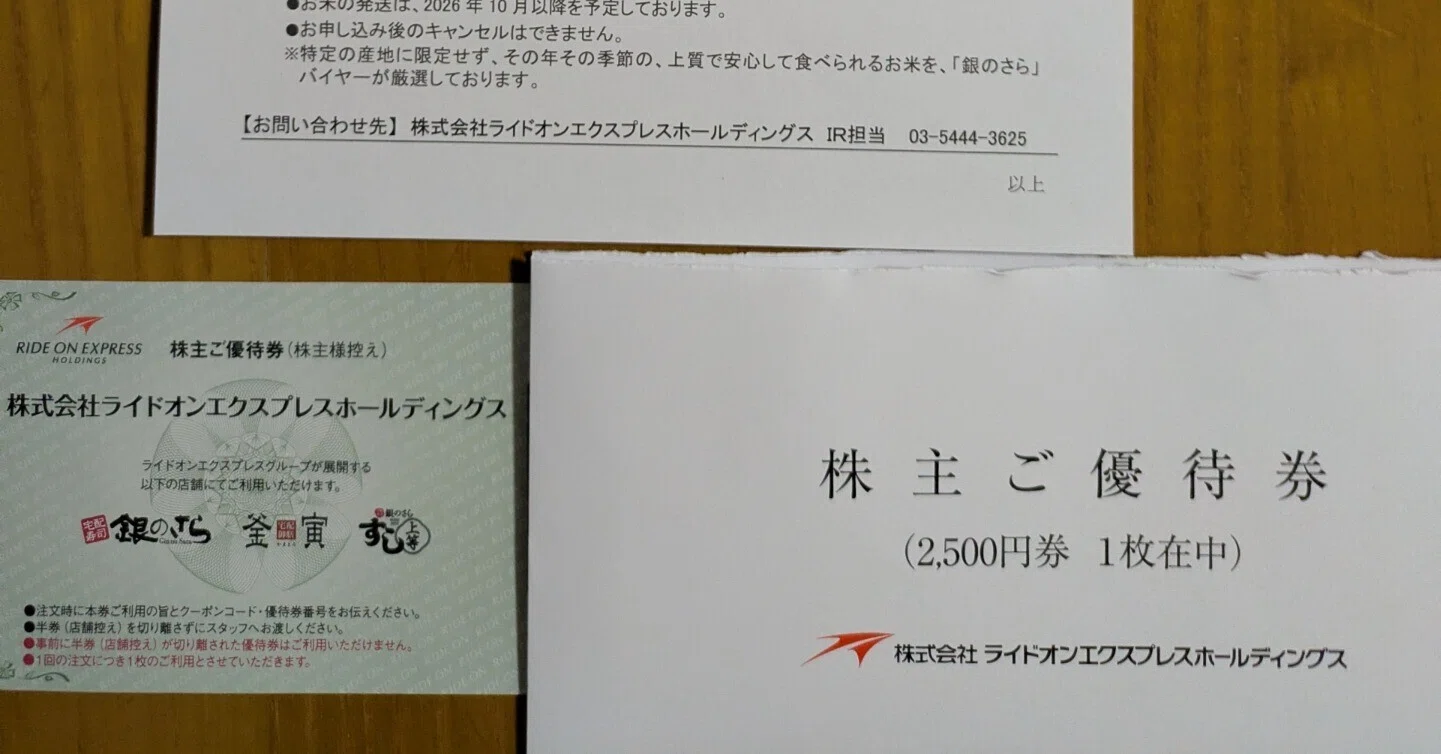 ●お米の発送は、2026年10月以降を予定しております。
●お申し込み後のキャンセルはできません。
※特定の産地に限定せず、その年その季節の、上質で安心して食べられるお米を、「銀のさら」
バイヤーが厳選しております。
【お問い合わせ先】 株式会社ライドオンエクスプレスホールディングス IR担当 03-5444-3625
以上
RIDE ON EXPRESS
HOLDINGS
株主ご優待券(株主様控え)
株式会社ライドオンエクスプレスホールディングス
ライドオンエクスプレスグループが展開する
以下の店舗にてご利用いただけます。
宅配寿司 銀のさら 釜寅 銀のさら すし上等
●注文時に本券ご利用の旨とクーポンコード・優待券番号をお伝えください。
●半券(店舗控え)を切り離さずにスタッフへお渡しください。
●事前に半券(店舗控え)が切り離された優待券はご利用いただけません。
●1回の注文につき1枚のご利用とさせていただきます。
株主ご優待券
(2,500円券 1枚在中)
株式会社 ライドオンエクスプレスホールディングス